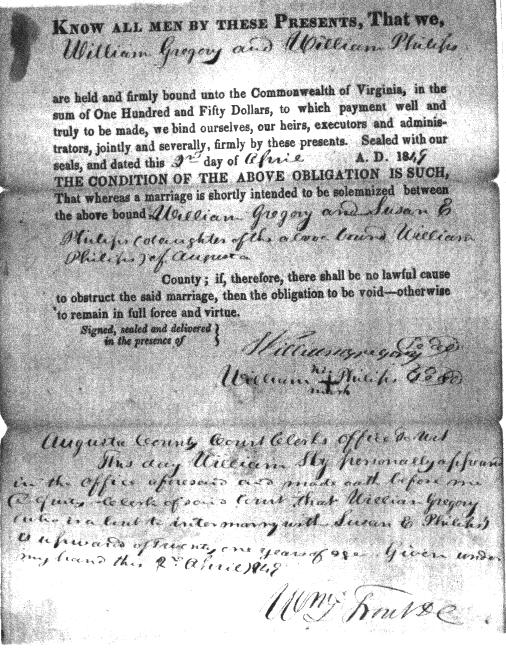 KNOW ALL MEN BY THESE PRESENTS, That we,
William Gregory and William Philips
are held and firmly bound unto the Commonwealth of Virginia, in the
sum of One Hundred and Fifty Dollars, to which payment well and
truly to be made, we bind ourselves, our heirs, executors and adminis-
trators, jointly and severally, firmly by these presents. Sealed with our
seals, and dated this 2nd day of April A. D. 184
THE CONDITION OF THE ABOVE OBLIGATION IS SUCH,
That whereas a marriage is shortly intended to be solemnized between
the above bound William Gregory and Susan E
Philips daughter of the above bound William
Philips of Augusta
County; if, therefore, there shall be no lawful cause
to obstruct the said marriage, then the obligation to be void—otherwise
to remain in full force and virtue.
Signed, sealed and delivered
in the presence of
William Gregory
William his Philips
mark
Augusta County Court Clerks office To Wit
This day William personally appeared
in the office aforesaid and made oath before me
Clerk of said Court that William Gregory
who is about to intermarry with Susan E Philips
is upwards of twenty one years of age Given under
my hand this 2nd April 184
Wm